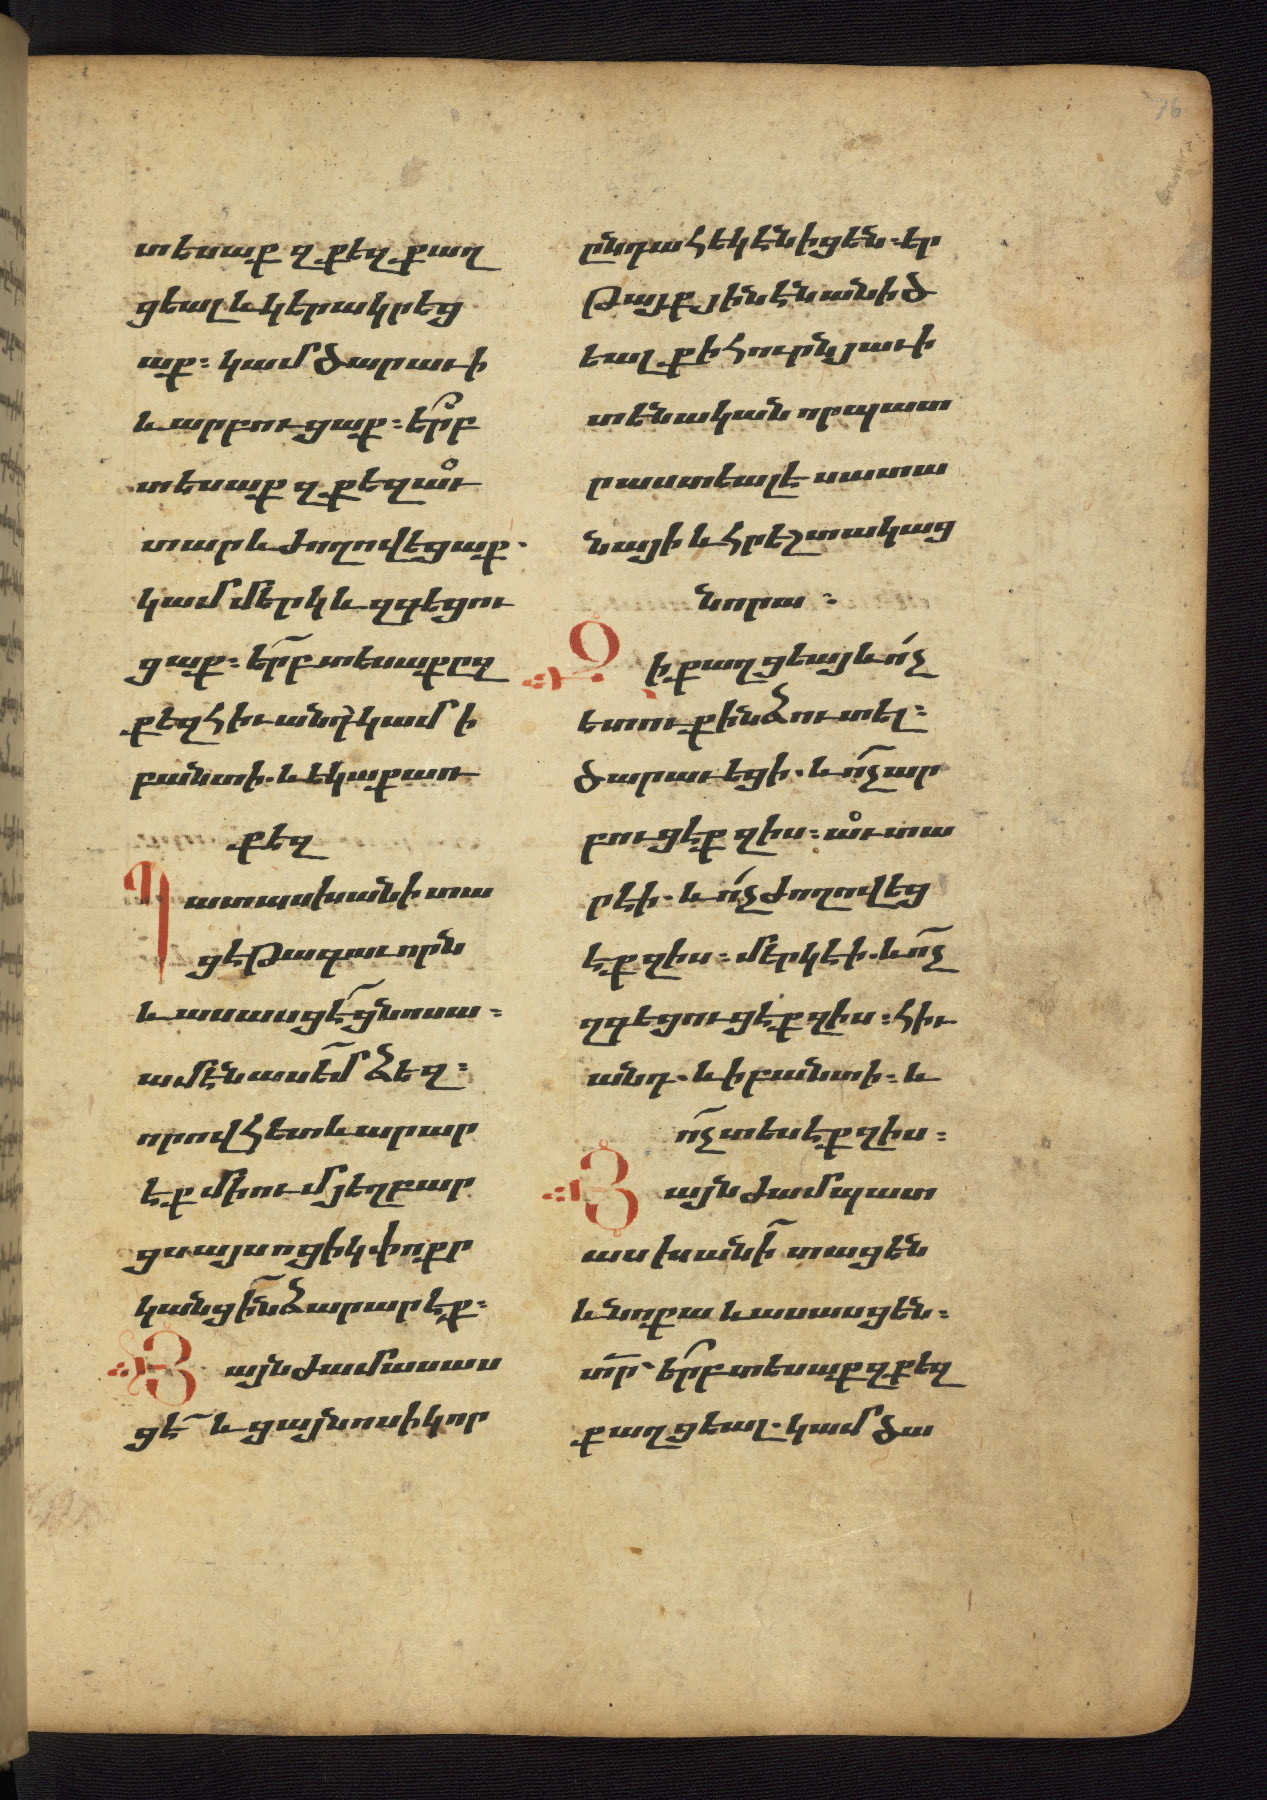 տեսաք զքեզ քաղ
ցեալ և կերակրեց
աք։ կամ ծարաւի
և արբուցաք։ ե՞րբ
տեսաք զքեզ աւ̊
տար և ժողովեցաք.
կամ մերկ և զգեցու
ցաք։ ե՞րբ տեսաք ըզ
քեզ հիւանդ կամ ի
բանտի. և եկաք առ
քեզ
Պատասխանի տա
ցէ թագաւորն
և ասասցէ ցնոսա։
ամէն ասեմ ձեզ։
որովհետև արար
էք միում յեղբար
ցս այսոցիկ փոքր
կանց ինձ արարէք։
Յայնժամ ասաս
ցէ և ցայնոսիկ որ
ընդ ահեկէն իցեն։ եր
թայք յինէն անիծ
եալք ի հուրն յաւի
տենական որ պատ
րաստեալ է սատա
նայի և հրեշտակաց
նորա։
Զի քաղցեայ և ոչ
ետուք ինձ ուտել։
ծարաւեցի. և ոչ ար
բուցէք զիս։ աւ̊տա
րէի. և ոչ ժողովեց
էք զիս։ մերկ էի. և ոչ
զգեցուցէք զիս։ հիւ
անդ. և ի բանտի։ և
ոչ տեսէք զիս։
Յայնժամ պատ
ասխանի տացեն
և նոքա և ասասցեն։
տ̅ր՝ ե՞րբ տեսաք զքեզ
քաղցեալ. կամ ծա
76